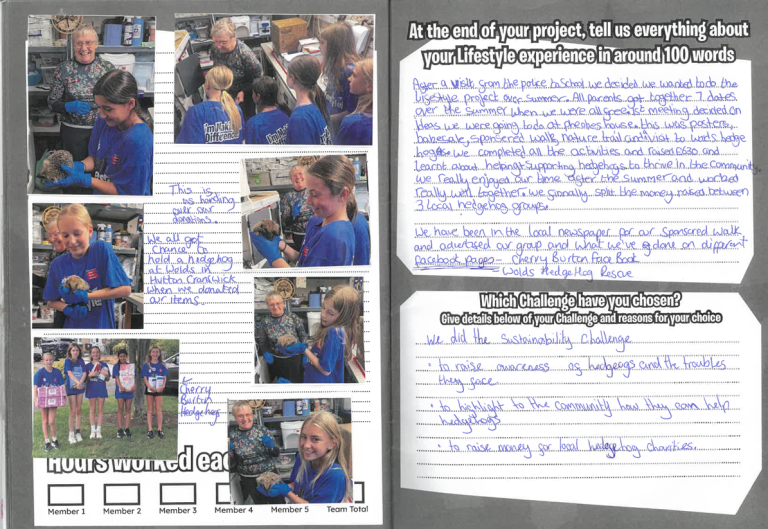 This is
us handing
over our
donations.
We all got
chance to
hold a hedgehog
at Wolds in
Hutton Cranswick
when we donated
our items.
Cherry
Burton
Hedgehogs
Hours worked ea
Member 1 Member 2 Member 3 Member 4 Member 5 Team Total
At the end of your project, tell us everything about
your Lifestyle experience in around 100 words
After a visit from the police to School we decided we wanted to do the
lifestyle project over summer. All parents got together 7 dates
over the summer when we were all free. 1st meeting decided on
ideas we were going to do at pheobes house. this was posters,
bakesale, sponsered walk, nature trail and visit to wolds hedge
hogs. we completed all the activities and raised £630 and
learnt about helping/supporting hedgehogs to thrive in the community
we really enjoyed our time after the summer and worked
really well together. we finally split the money raised between
3 local hedgehog groups.
We have been in the local newspaper for our sponsored walk
and advertised our group and what we've done on different
facebook pages - Cherry Burton Face Book
Wolds HedgeHog Rescue
Which Challenge have you chosen?
Give details below of your Challenge and reasons for your choice
We did the Sustainability Challenge
• to raise awareness of hedgehogs and the troubles
they face
• to highlight to the community how they can help
hedgehogs
• to raise money for local hedgehog charities.